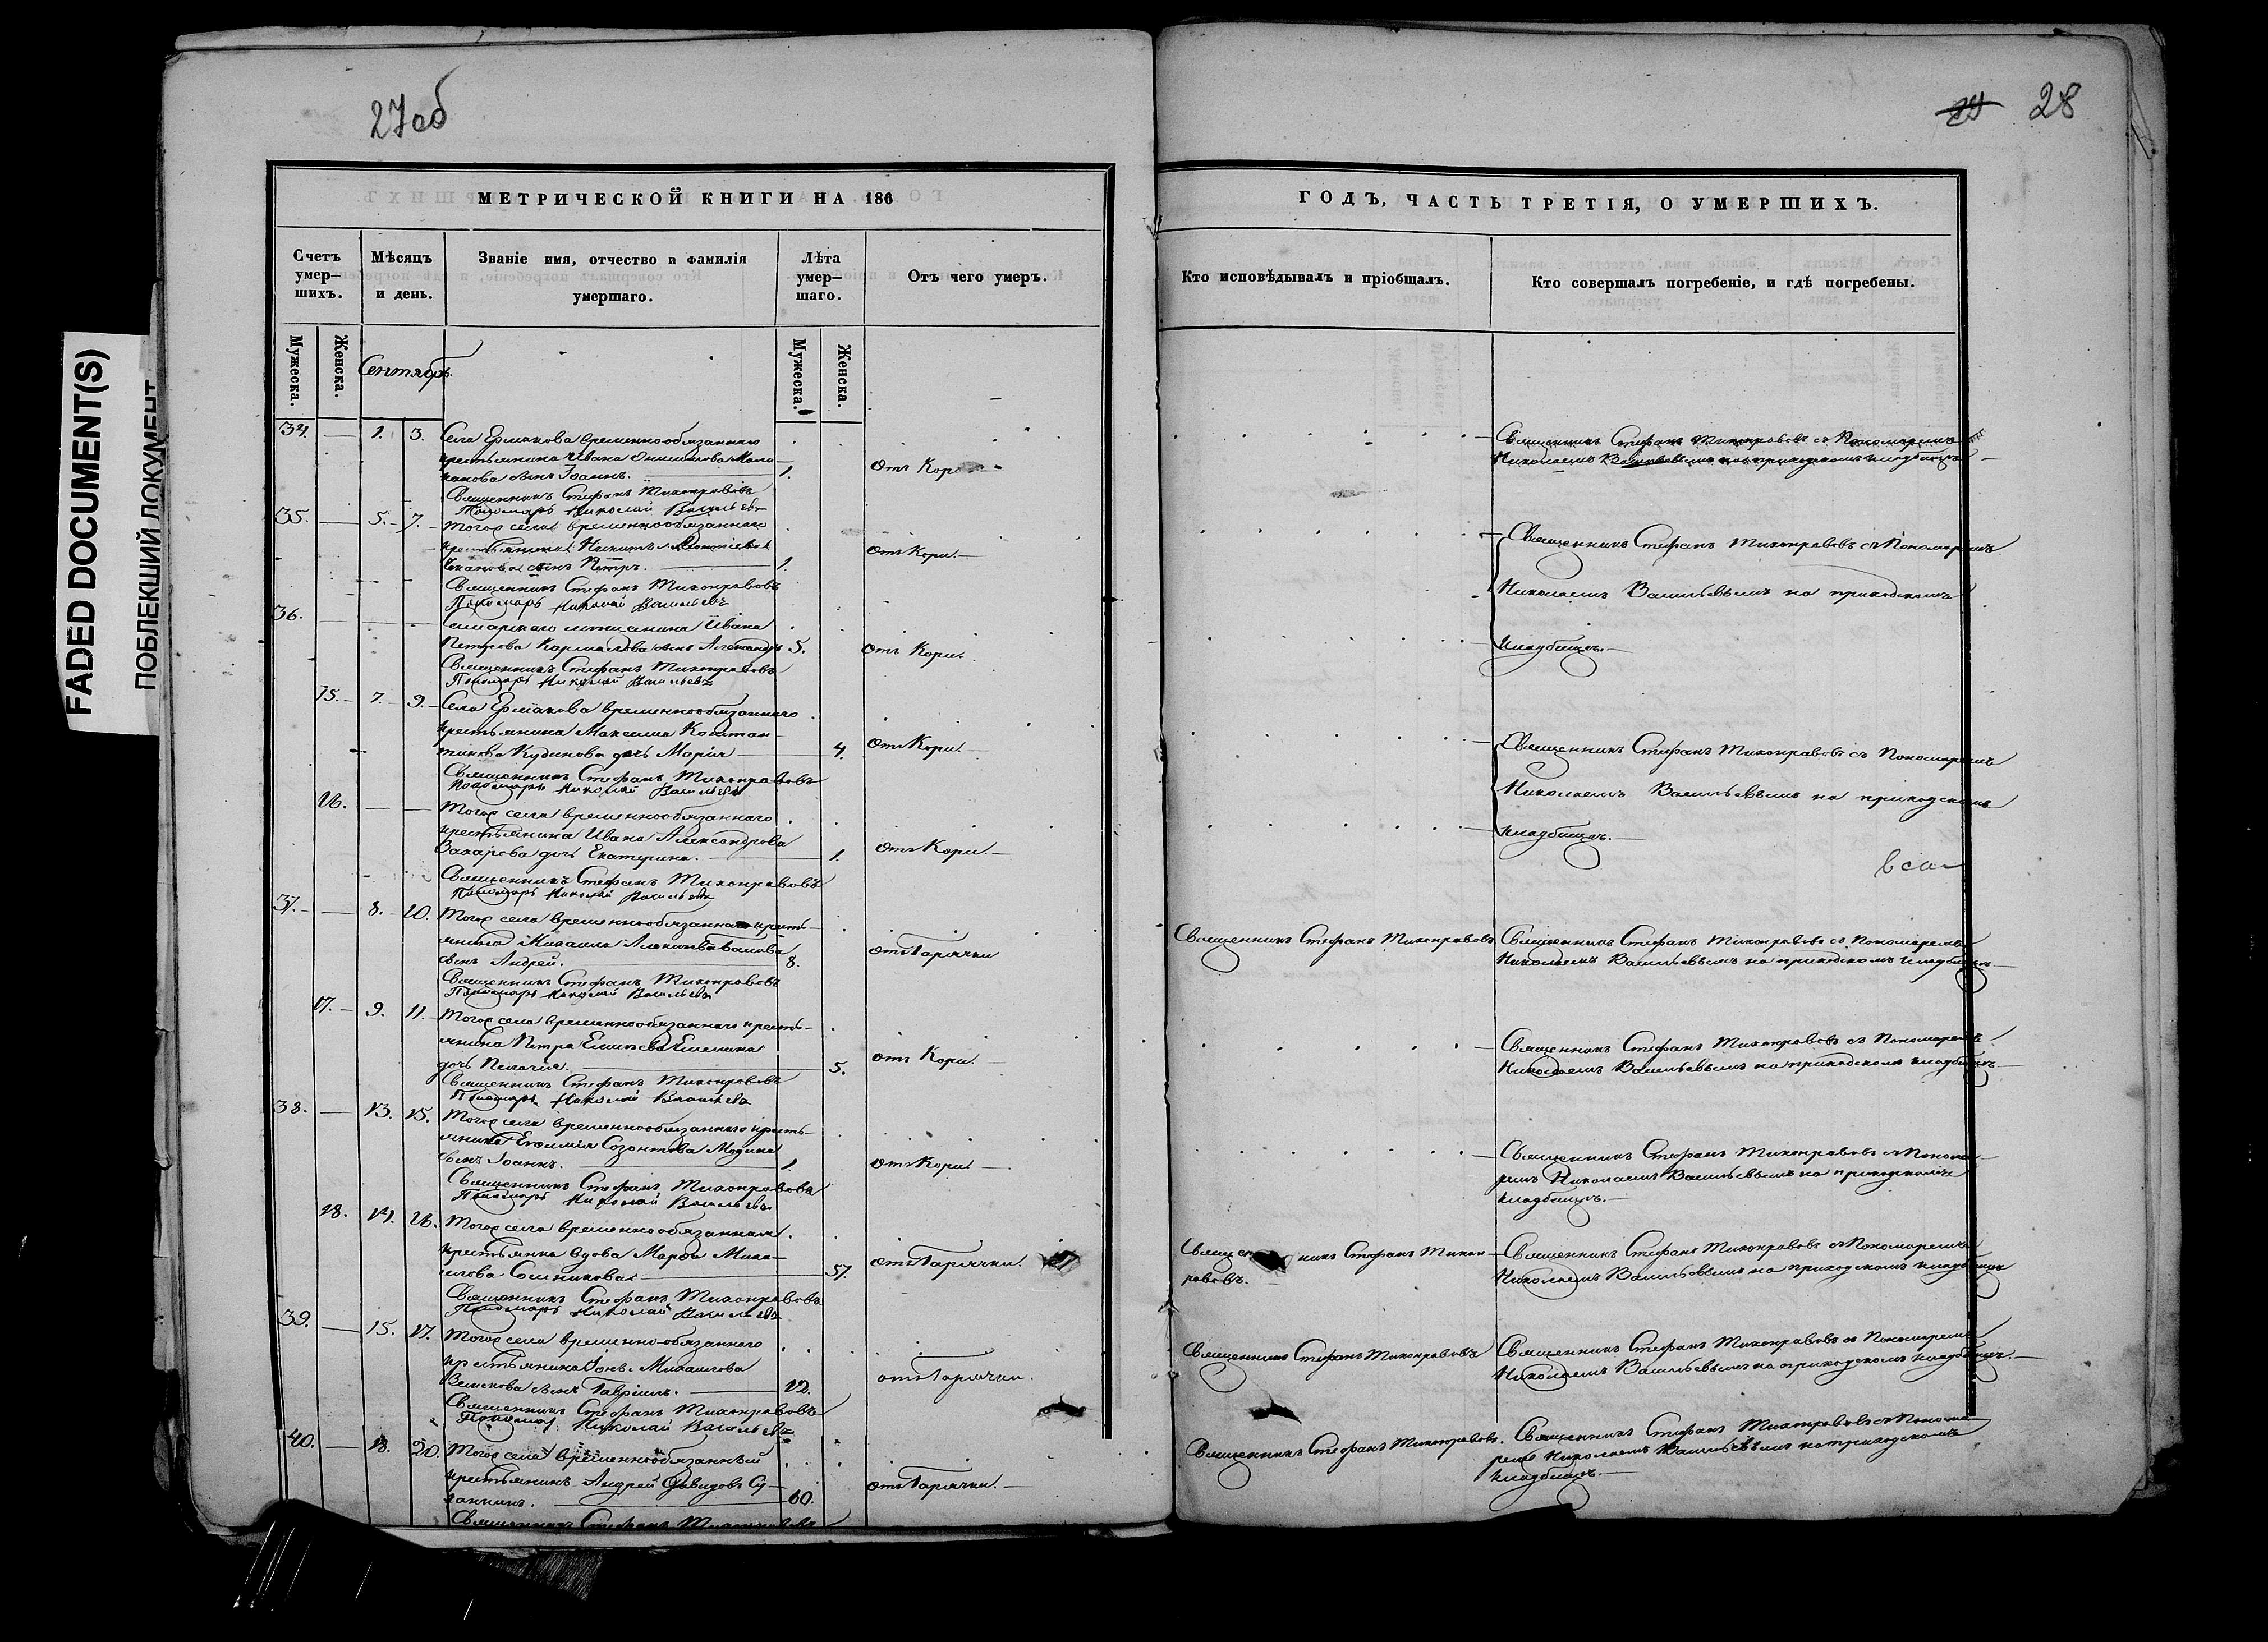 27об
28
FADED DOCUMENT(S)
ПОБЛЕКШИЙ ДОКУМЕНТ
МЕТРИЧЕСКОЙ КНИГИ НА 186
Счетъ умер-шихъ.
Мѣсяцъ и день.
Званіе имя, отчество и фамилія умершаго.
Лѣта умер-шаго.
Отъ чего умеръ.
Мужеска.
Женска.
Сентябрь.
Мужеска.
Женска.
34. — 1. 3. Села Ермакова временнообязаннаго
крестьянина Ивана
сынъ Іоаннъ. — 1. Отъ Кори
Священникъ Стефанъ Тихонравовъ
Пономарь Николай Васильевъ
35. — 5. 7. Тогоже села временнообязаннаго
крестьянина Никиты
сынъ Петръ. — 1. Отъ Кори. —
Священникъ Стефанъ Тихонравовъ
Пономарь Николай Васильевъ
36. — — — мещанина Ивана
Петрова сынъ Александръ 5. Отъ Кори.
Священникъ Стефанъ Тихонравовъ
Пономарь Николай Васильевъ
15. — 7. — 9. — Села Ермакова временнообязаннаго
крестьянина Максима Констан-
тинова Кудинова дочь Марія — 4. Отъ Кори —
Священникъ Стефанъ Тихонравовъ
Пономарь Николай Васильевъ
16. — — Тогоже села временнообязаннаго
крестьянина Ивана Александрова
Захарова дочь Екатерина. — 1. Отъ Кори. —
Священникъ Стефанъ Тихонравовъ
Пономарь Николай Васильевъ
37. — 8. — 10. Тогоже села временнообязаннаго кресть-
янина Михаила
сынъ Андрей. — 8. Отъ Горячки
Священникъ Стефанъ Тихонравовъ
Пономарь Николай Васильевъ
17. — 9. 11. — Тогоже села временнообязаннаго кресть-
янина Петра
дочь Пелагія. — 5. Отъ Кори. —
Священникъ Стефанъ Тихонравовъ
Пономарь Николай Васильевъ
38. — 13. 15. Тогоже села временнообязаннаго кресть-
янина Евфимія Созонтова
сынъ Іоаннъ. — 1. Отъ Кори —.
Священникъ Стефанъ Тихонравовъ
Пономарь Николай Васильевъ
18. 14. 16. Тогоже села временнообязанная
вдова Марфа Миха-
илова — 57. Отъ Горячки.
Священникъ Стефанъ Тихонравовъ
Пономарь Николай Васильевъ
39. — 15. 17. Тогоже села временно-обязаннаго
крестьянина Іоны Михаилова
сынъ Гавріилъ. — 12. Отъ Горячки.
Священникъ Стефанъ Тихонравовъ
Пономарь Николай Васильевъ
40. — 18. 20. Тогоже села временнообязанный
крестьянинъ Андрей Давидовъ
— 60. Отъ Горячки. —
Священникъ Стефанъ Тихонравовъ
ГОДЪ, ЧАСТЬ ТРЕТІЯ, О УМЕРШИХЪ.
Кто исповѣдывалъ и пріобщалъ.
Кто совершалъ погребеніе, и гдѣ погребены.
Священникъ Стефанъ Тихонравовъ съ Пономаремъ
Николаемъ Васильевымъ на приходскомъ кладбищѣ —
Священникъ Стефанъ Тихонравовъ съ Пономаремъ
Николаемъ Васильевымъ на приходскомъ
кладбищѣ. —
Священникъ Стефанъ Тихонравовъ съ Пономаремъ
Николаемъ Васильевымъ на приходскомъ
кладбищѣ. —
Священникъ Стефанъ Тихонравовъ Священникъ Стефанъ Тихонравовъ съ Пономаремъ
Николаемъ Васильевымъ на приходскомъ кладбищѣ. —
Священникъ Стефанъ Тихонравовъ съ Пономаремъ
Николаемъ Васильевымъ на приходскомъ кладбищѣ —
Священникъ Стефанъ Тихонравовъ съ Понома-
ремъ Николаемъ Васильевымъ на приходскомъ
кладбищѣ. —
Священникъ Стефанъ Тихон- Священникъ Стефанъ Тихонравовъ съ Пономаремъ
равовъ. Николаемъ Васильевымъ на приходскомъ кладбищѣ
Священникъ Стефанъ Тихонравовъ Священникъ Стефанъ Тихонравовъ съ Пономаремъ
Николаемъ Васильевымъ на приходскомъ кладбищѣ. —
Священникъ Стефанъ Тихонравовъ. Священникъ Стефанъ Тихонравовъ съ Понома-
ремъ Николаемъ Васильевымъ на приходскомъ
кладбищѣ. —